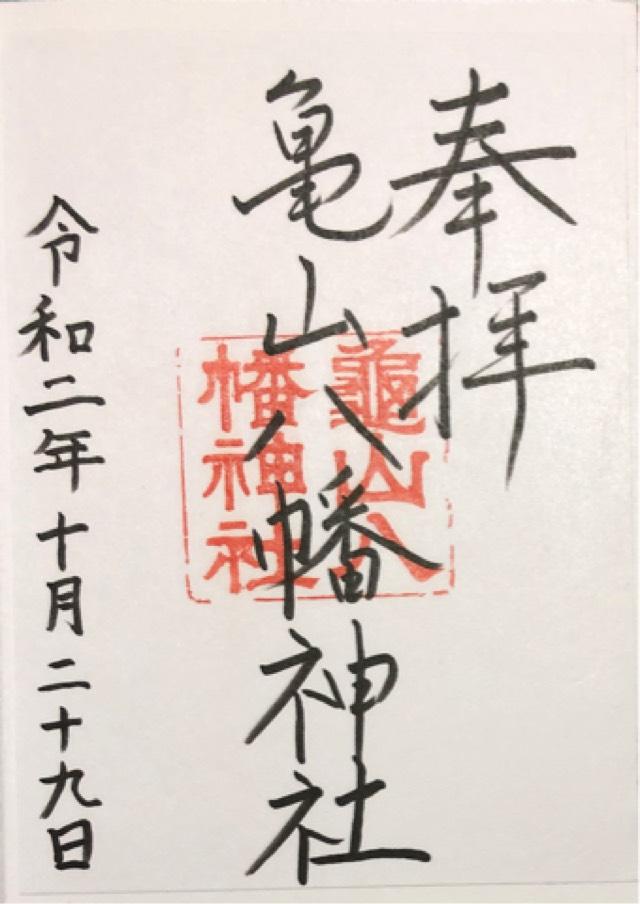 奉拝
亀山八幡神社
龜山八
幡神社
令和二年十月二十九日